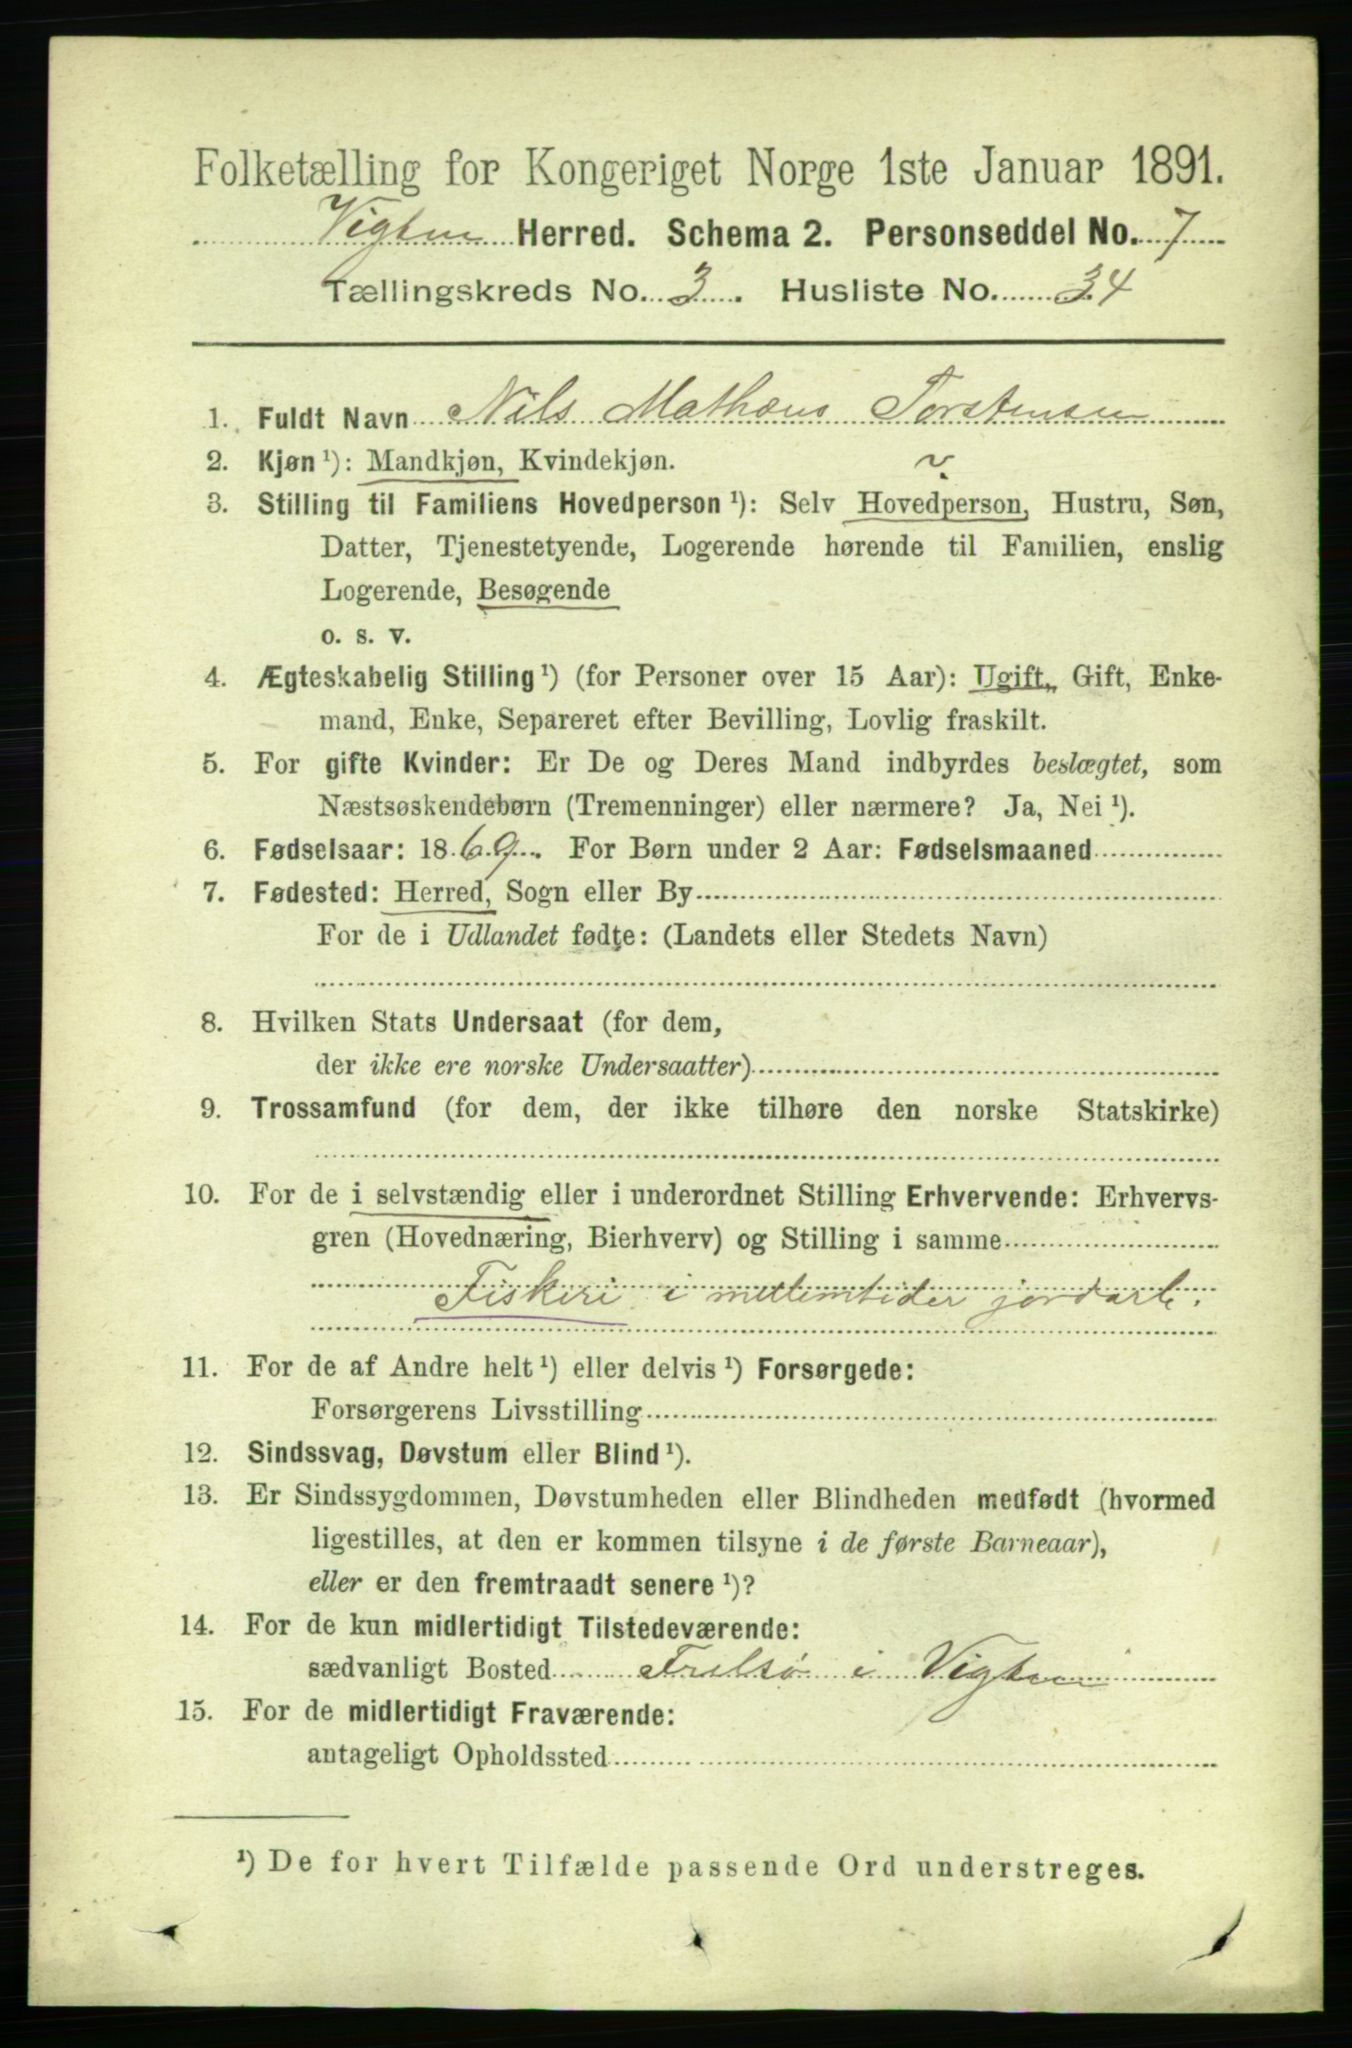 Folketælling for Kongeriget Norge 1ste Januar 1891.
Vigten Herred. Schema 2. Personseddel No. 7
Tællingskreds No. 3. Husliste No. 34
1. Fuldt Navn Nils Mathæus Torstensen
2. Kjøn ¹): Mandkjøn, Kvindekjøn.
3. Stilling til Familiens Hovedperson ¹): Selv Hovedperson, Hustru, Søn,
Datter, Tjenestetyende, Logerende hørende til Familien, enslig
Logerende, Besøgende
o. s. v.
4. Ægteskabelig Stilling ¹) (for Personer over 15 Aar): Ugift, Gift, Enke-
mand, Enke, Separeret efter Bevilling, Lovlig fraskilt.
5. For gifte Kvinder: Er De og Deres Mand indbyrdes beslægtet, som
Næstsøskendebørn (Tremenninger) eller nærmere? Ja, Nei ¹).
6. Fødselsaar: 1869. For Børn under 2 Aar: Fødselsmaaned
7. Fødested: Herred, Sogn eller By
For de i Udlandet fødte: (Landets eller Stedets Navn)
8. Hvilken Stats Undersaat (for dem,
der ikke ere norske Undersaatter)
9. Trossamfund (for dem, der ikke tilhøre den norske Statskirke)
10. For de i selvstændig eller i underordnet Stilling Erhvervende: Erhvervs-
gren (Hovednæring, Bierhverv) og Stilling i samme
Fiskeri i mellemtider jordarb.
11. For de af Andre helt ¹) eller delvis ¹) Forsørgede:
Forsørgerens Livsstilling
12. Sindssvag, Døvstum eller Blind ¹).
13. Er Sindssygdommen, Døvstumheden eller Blindheden medfødt (hvormed
ligestilles, at den er kommen tilsyne i de første Barneaar),
eller er den fremtraadt senere ¹)?
14. For de kun midlertidigt Tilstedeværende:
sædvanligt Bosted Frelsø i Vigten
15. For de midlertidigt Fraværende:
antageligt Opholdssted
¹) De for hvert Tilfælde passende Ord understreges.